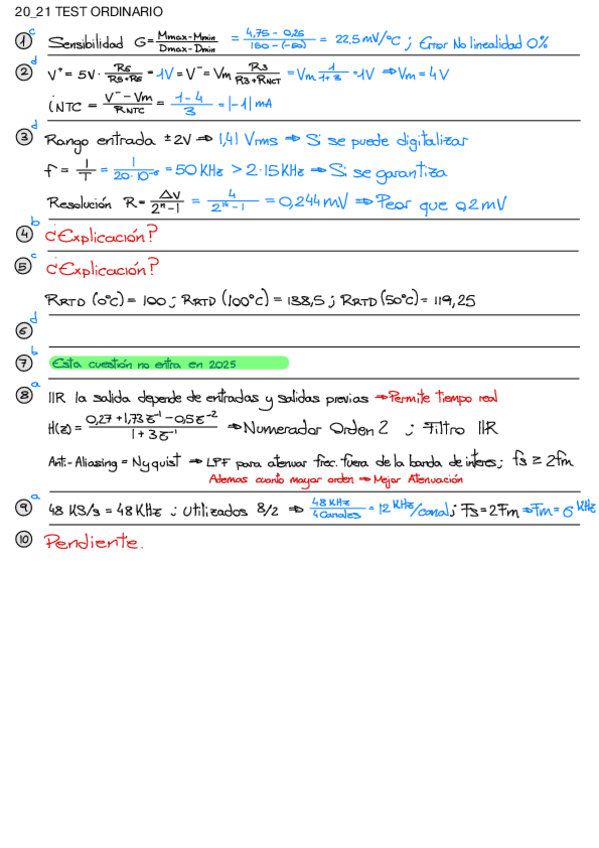 20_21 TEST ORDINARIO
① c Sensibilidad G = (Mmax - Mmin)/(Dmax - Dmin) = (4,75 - 0,25)/(150 - (-50)) = 22,5 mV/°C ; Error No linealidad 0%
② d V⁺ = 5V · R5/(R5+R6) = 1V = V⁻ = Vm R3/(R3+RNCT) = Vm 1/(1+3) = 1V ⇒ Vm = 4V
iNTC = (V⁻ - Vm)/RNTC = (1-4)/3 = |-1| mA
③ d Rango entrada ±2V ⇒ 1,41 Vrms ⇒ Si se puede digitalizar
f = 1/T = 1/(20·10⁻⁶) = 50 KHz > 2·15KHz ⇒ Si se garantiza
Resolución R = ΔV/(2ⁿ-1) = 4/(2¹⁴-1) = 0,244 mV ⇒ Peor que 0,2 mV
④ b ¿Explicación?
⑤ c ¿Explicación?
RRTD (0°C) = 100 ; RRTD (100°C) = 138,5 ; RRTD (50°C) = 119,25
⑥ d
⑦ b Esta cuestión no entra en 2025
⑧ a IIR la salida depende de entradas y salidas previas ⇒ Permite tiempo real
H(z) = (0,27 + 1,73 z⁻¹ - 0,5 z⁻²)/(1 + 3 z⁻¹) ⇒ Numerador Orden 2 ; Filtro IIR
Anti-Aliasing = Nyquist ⇒ LPF para atenuar frec. fuera de la banda de interes ; fs ≥ 2fm
Ademas cuanto mayor orden ⇒ Mejor Atenuación
⑨ a 48 KS/s = 48 KHz ; Utilizados 8/2 ⇒ 48 KHz/4 Canales = 12 KHz/canal ; Fs = 2Fm ⇒ Fm = 6 KHz
⑩ Pendiente.